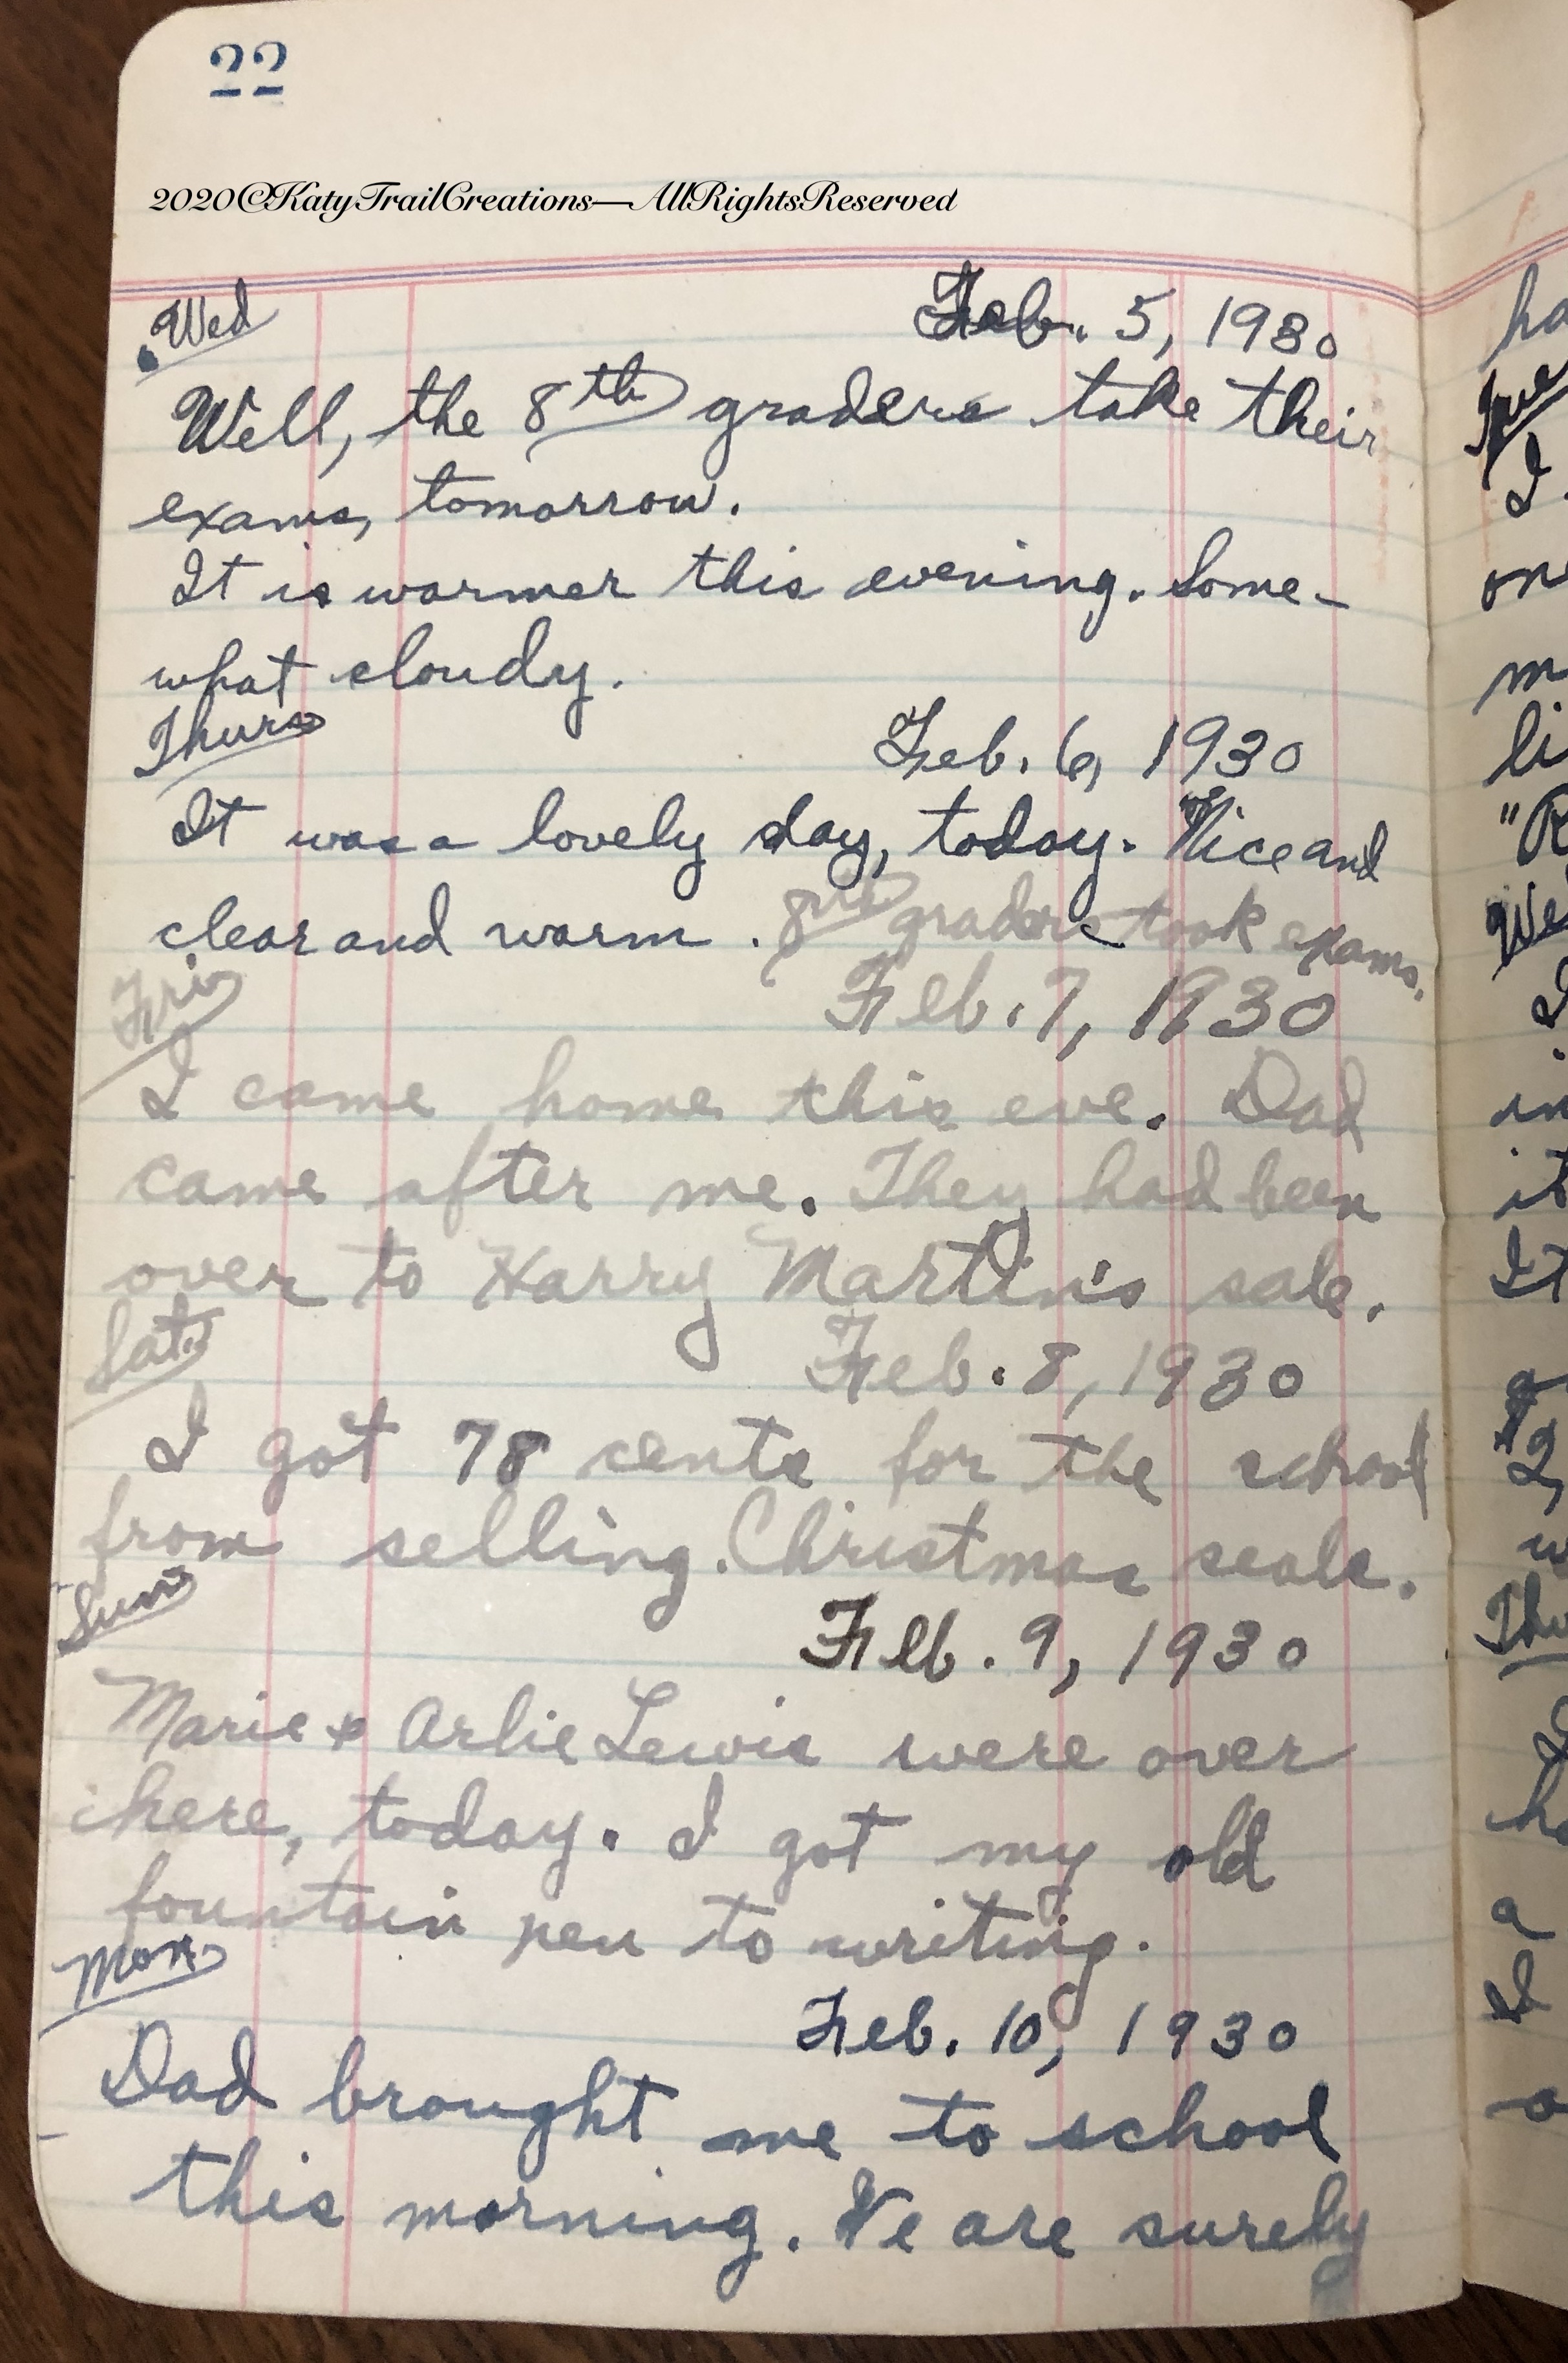 22
2020©KatyTrailCreations—AllRightsReserved
Wed
Feb. 5, 1930
Well, the 8th graders take their
exams, tomorrow.
It is warmer this evening. Some-
what cloudy.
Thurs
Feb. 6, 1930
It was a lovely day, today. Nice and
clear and warm. 8th graders took exams.
Fri
Feb. 7, 1930
I came home this eve. Dad
came after me. They had been
over to Harry Martin's sale.
Sat.
Feb. 8, 1930
I got 78 cents for the school
from selling Christmas seals.
Sun
Feb. 9, 1930
Marie & Arlie Lewis were over
here, today. I got my old
fountain pen to writing.
Mon
Feb. 10, 1930
Dad brought me to school
this morning. We are surely